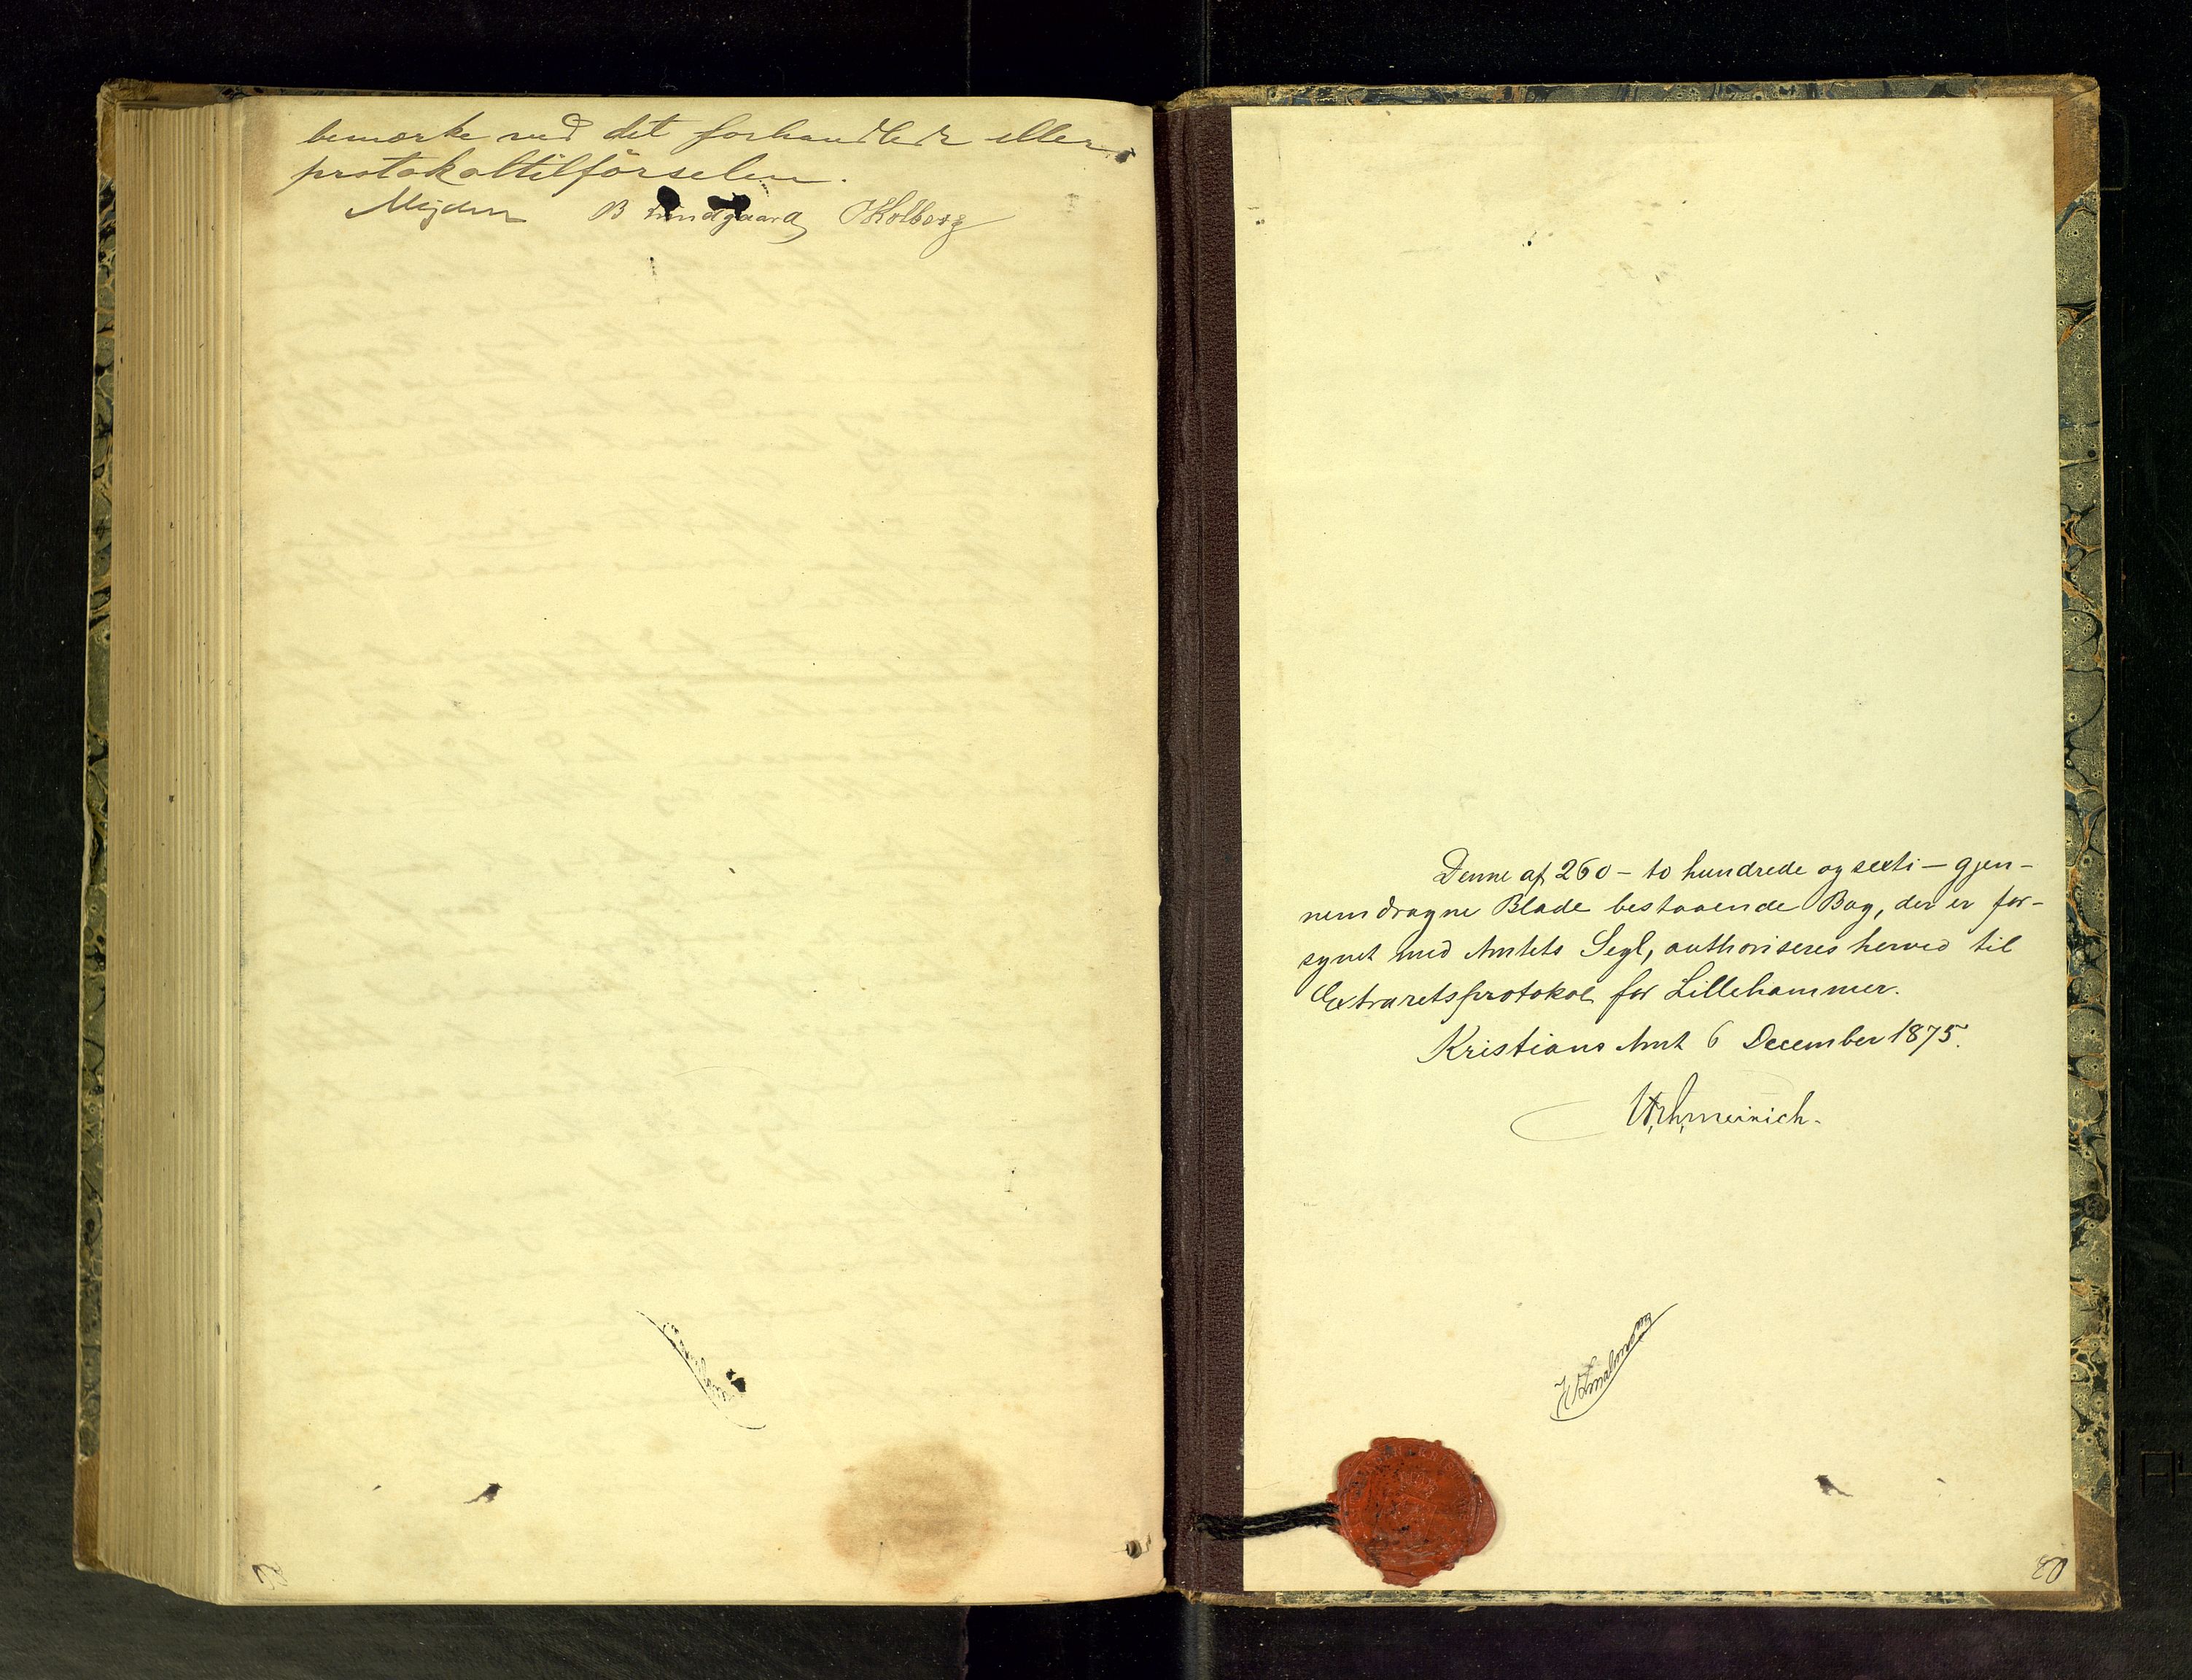 bemærke ved det forhandlede eller
protokoltilförselen.
Mejdell B Lundgaard OKolberg
Denne af 260 – to hundrede og sexti – gjen-
nemdragne Blade bestaaende Bog, der er for-
synet med Amtets Segl, authoriseres herved til
Extraretsprotokol for Lillehammer.
Kristians Amt 6 December 1875.